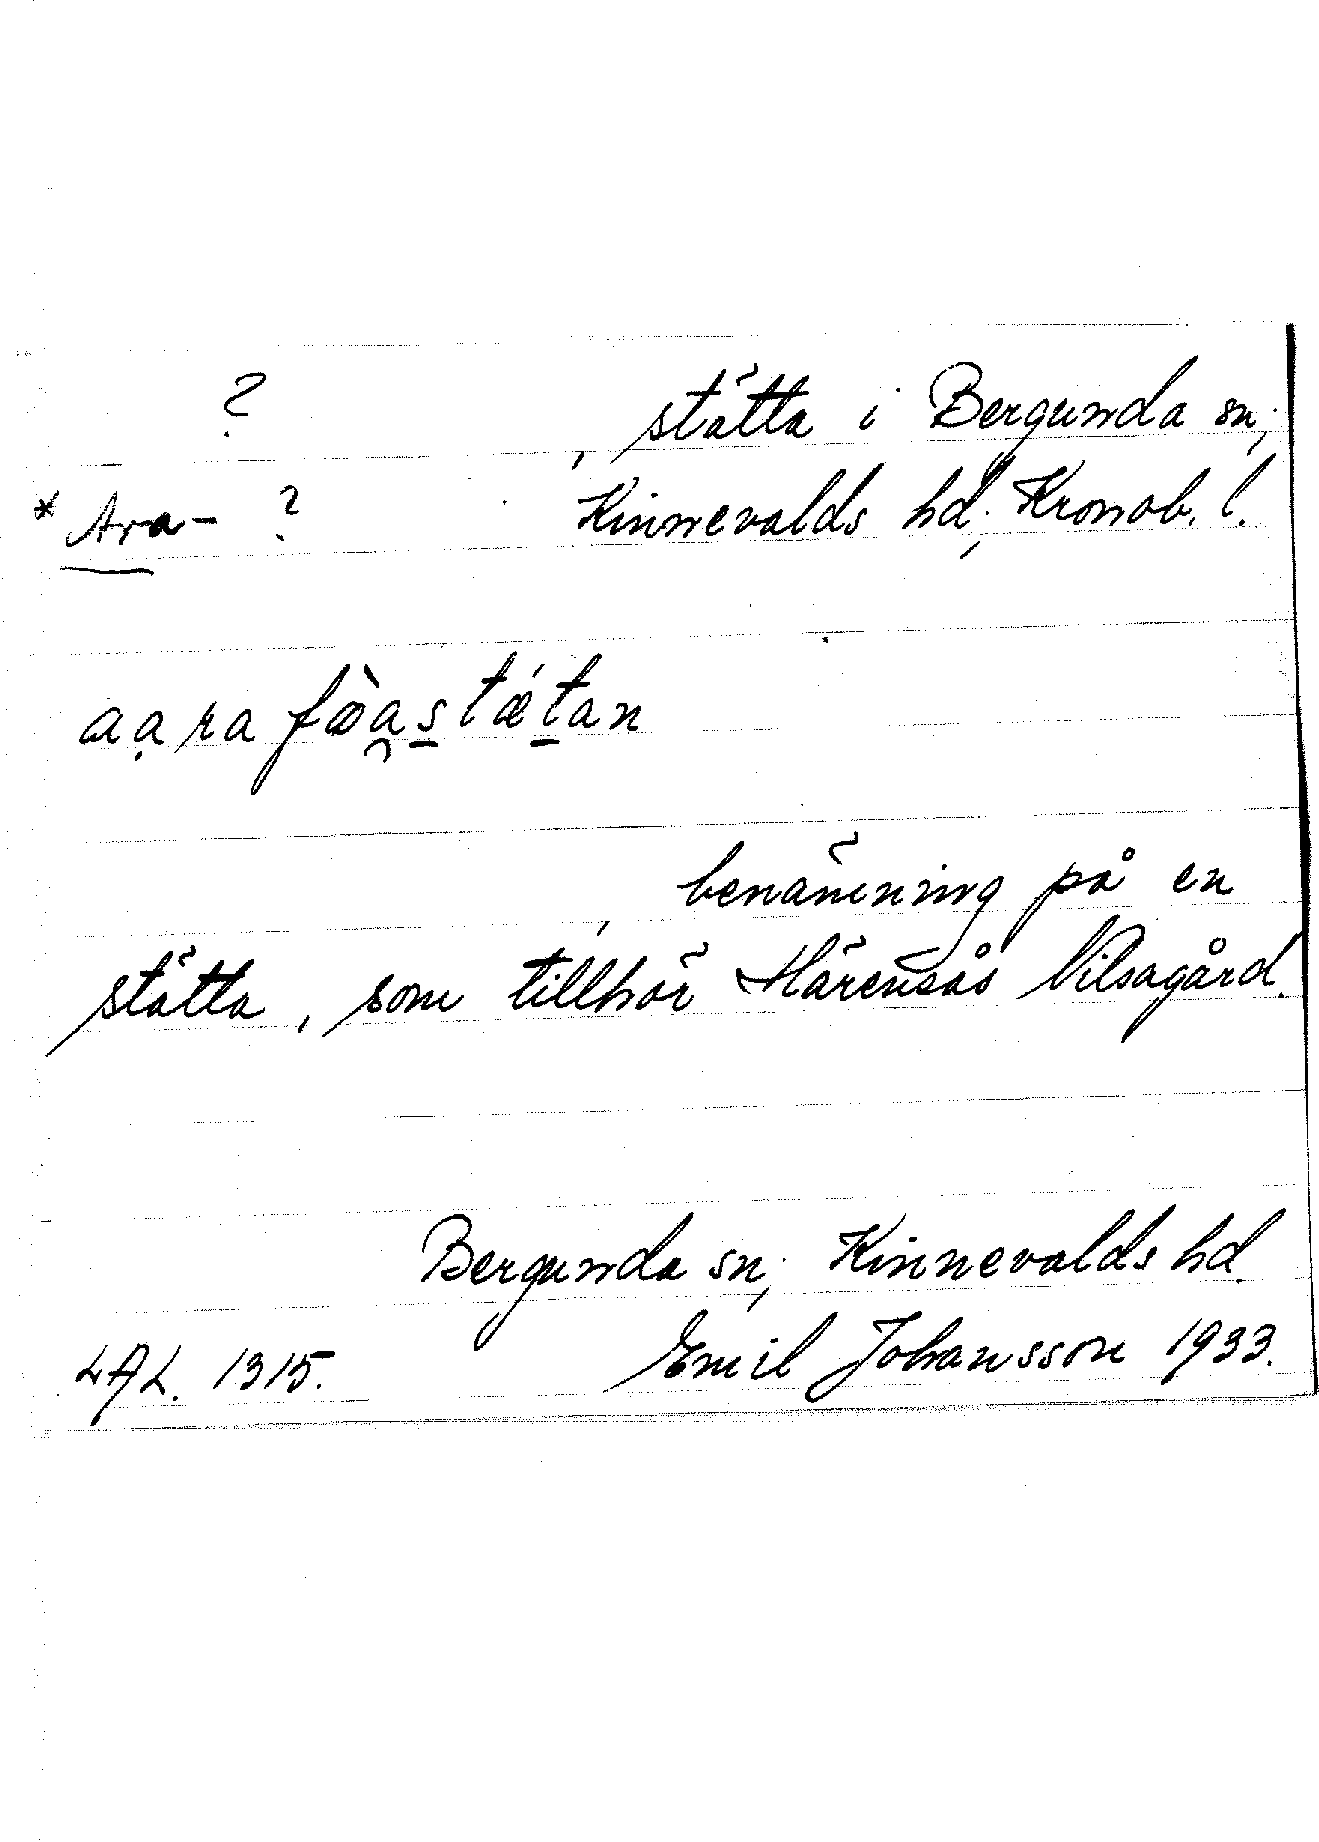 ? , stätta i Bergunda sn,
* Ara- ? Kinnevalds hd, Kronob. l.
aạra fæ̀a̯s̱tǽṯan
, benämning på en
stätta, som tillhör Härensås Nilsagård.
Bergunda sn, Kinnevalds hd.
LAL. 1315. Emil Johansson 1933.